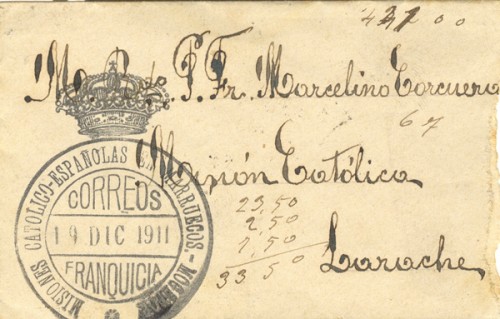 437 00
M. R. P. Fr. Marcelino Corcuera
67
Misión Católica
23,50
2,50
7,50
33 50
Larache
MISIONES CATOLICO-ESPAÑOLAS EN MARRUECOS - MOGADOR
CORREOS
19 DIC 1911
FRANQUICIA